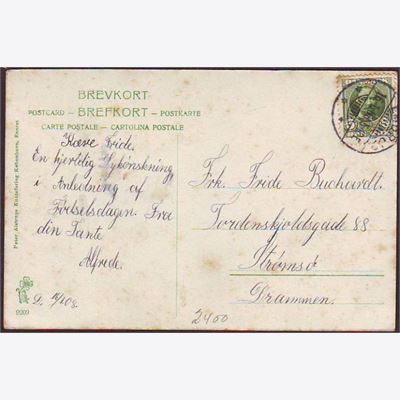 BREVKORT
POSTCARD - BREFKORT - POSTKARTE
CARTE POSTALE - CARTOLINA POSTALE
Kære Fride.
En hjertelig Lykønskning
i Anledning af
Fødselsdagen. Fra
din Tante
Alfrede.
Frk. Fride Buchardt.
Tordenskjoldsgade 88
Strømsø
Drammen.
2400
Peter Alstrups Kunstforlag København, Eneret
9209